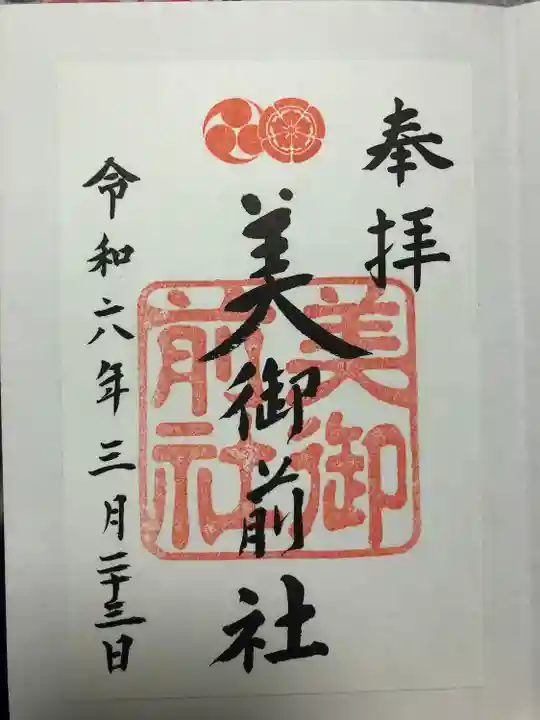 奉拝
美御前社
美御前社
令和六年三月二十三日